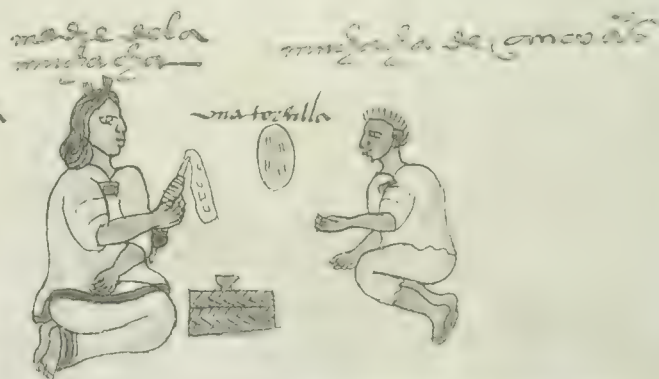 madre de la
muchacha
muchacha de cinco años
una tortilla